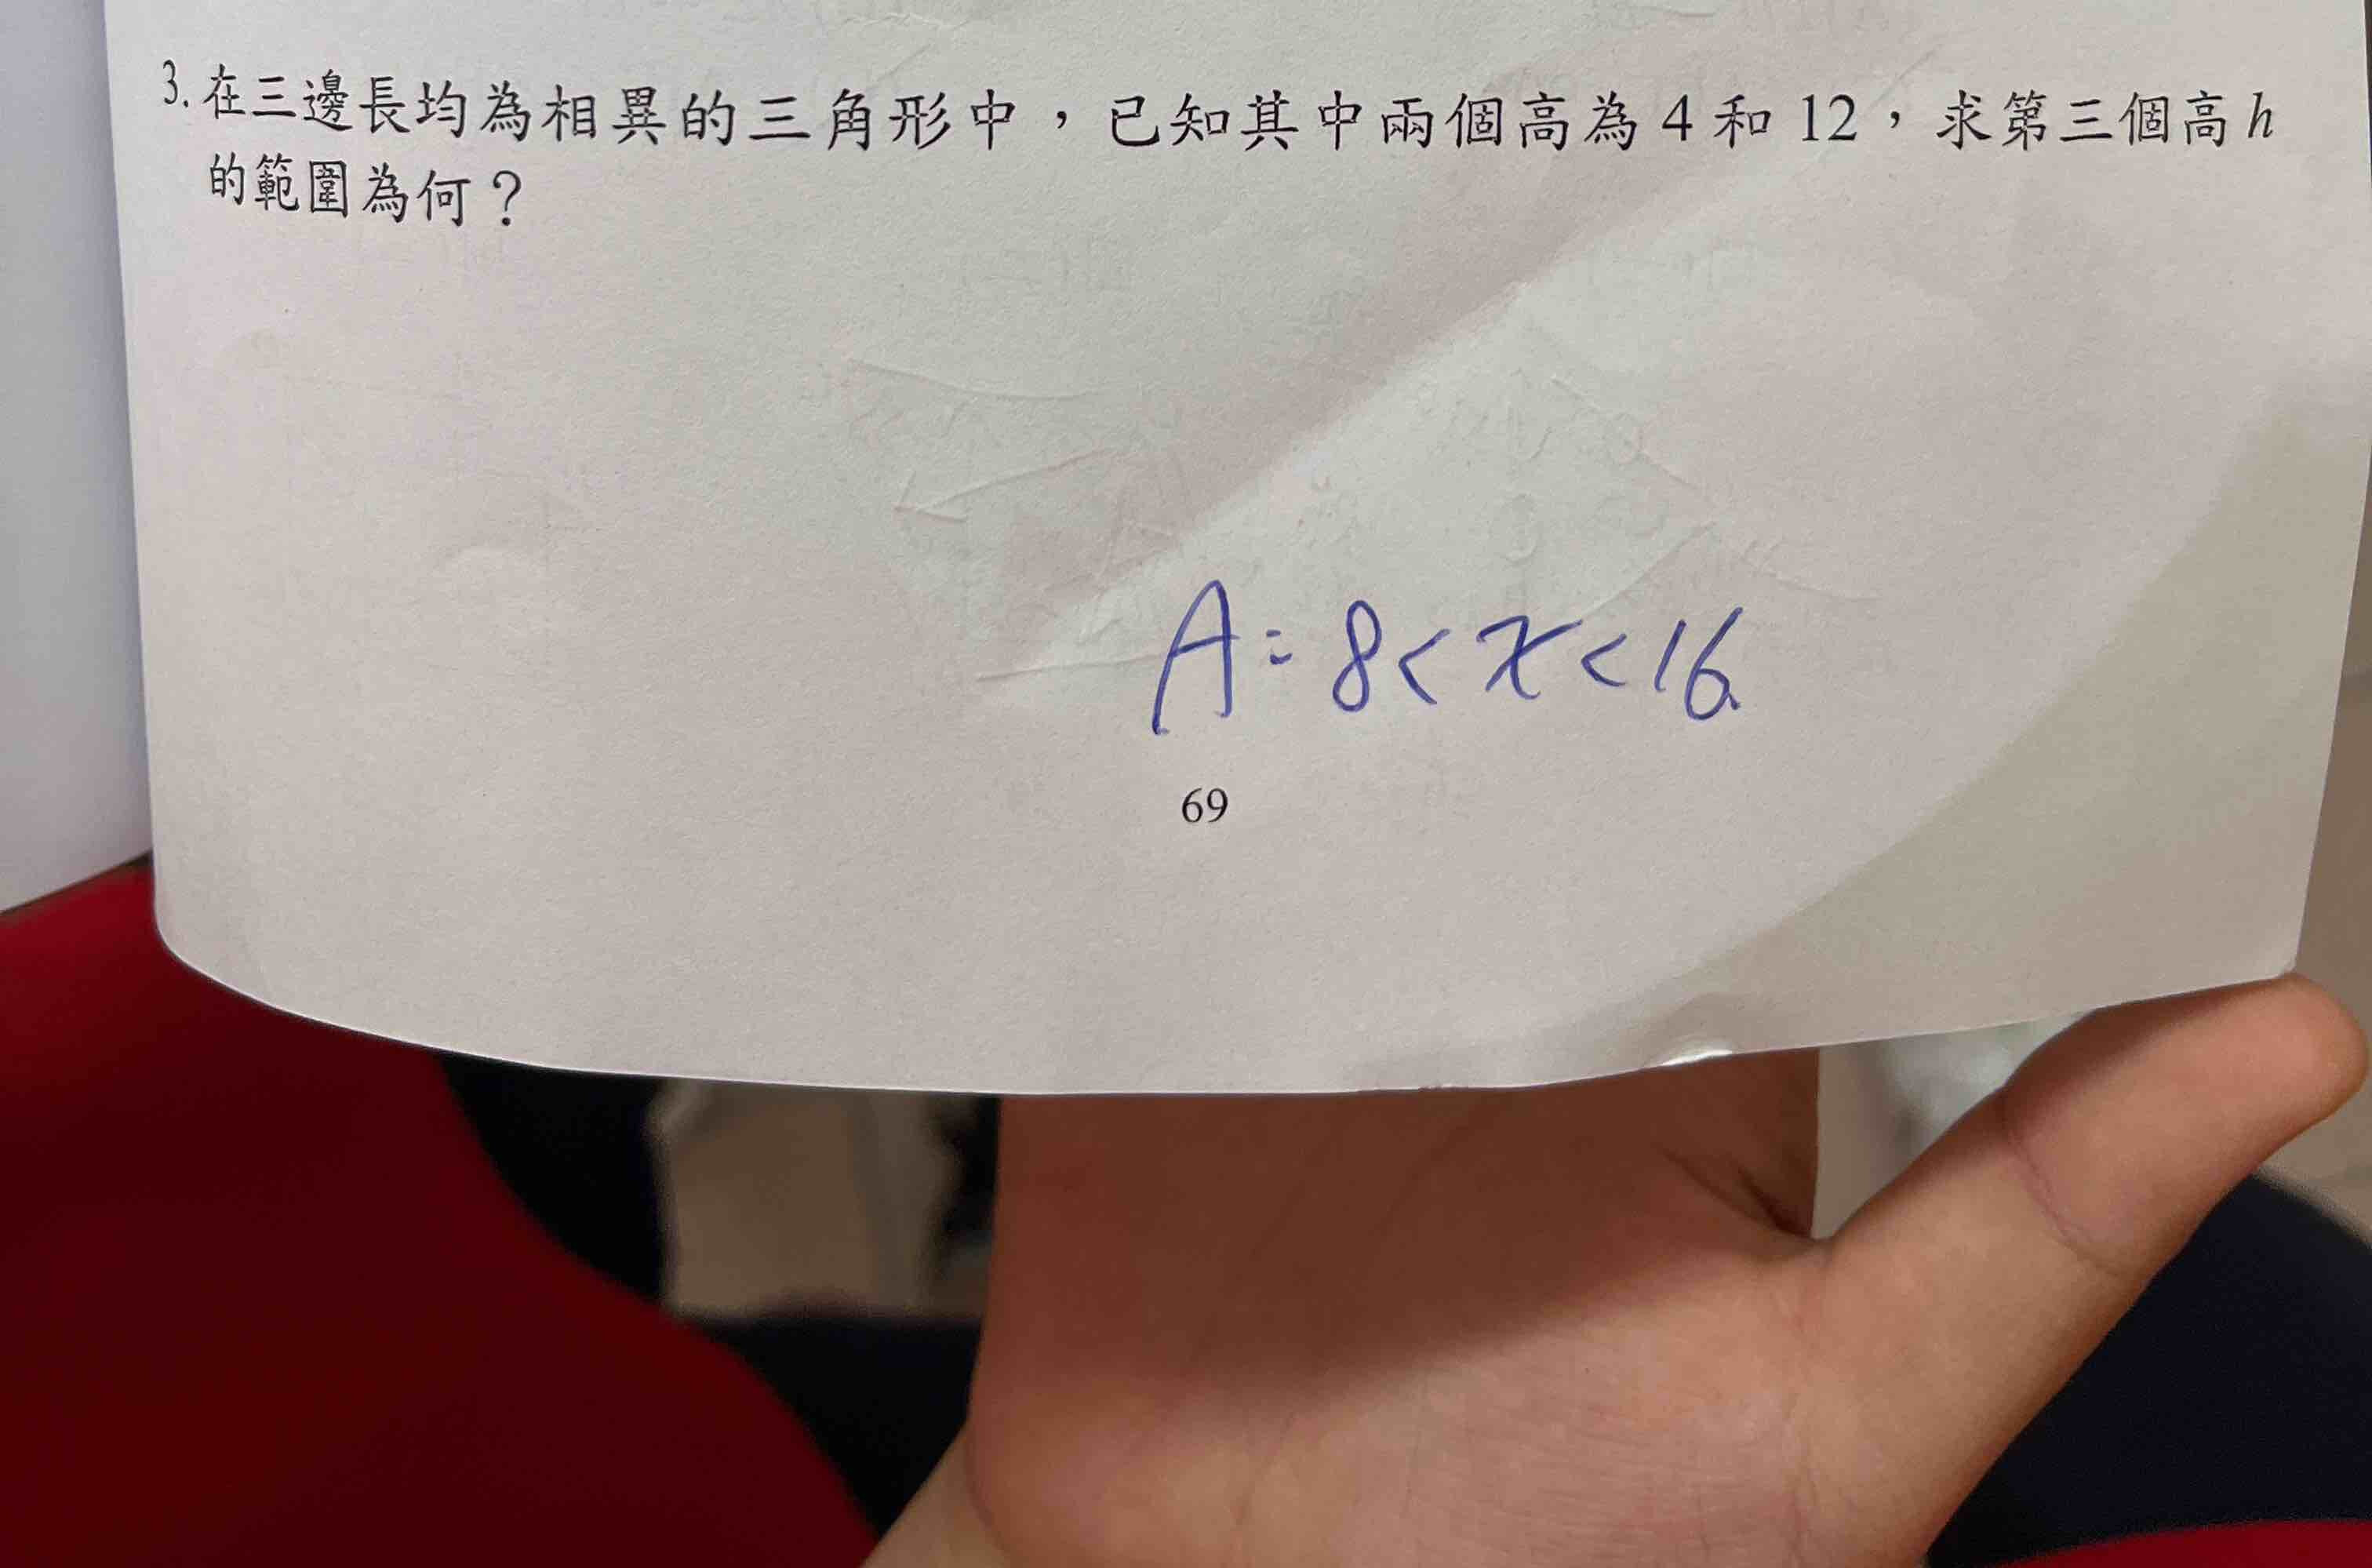 3.在三邊長均為相異的三角形中，已知其中兩個高為 4 和 12，求第三個高 h
的範圍為何？
A：8<x<16
69